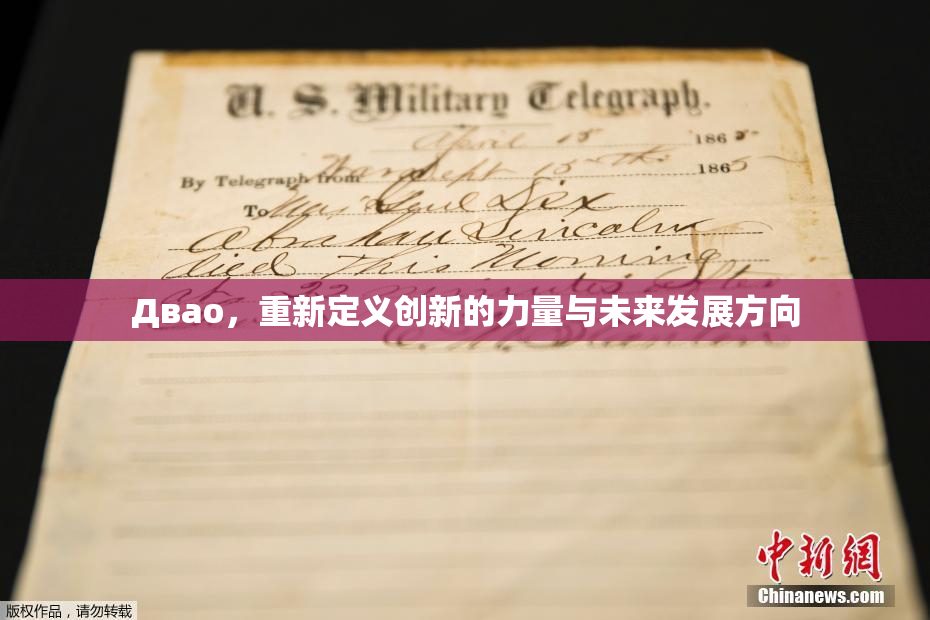 U. S. Military Telegraph.
April 15 1865
By Telegraph from War Dept 15th 1865
To Maj Genl Dix
Abraham Lincoln
died This Morning
at 22 minutes after
Двао，重新定义创新的力量与未来发展方向
E. M. Stanton
中新网
Chinanews.com
版权作品，请勿转载